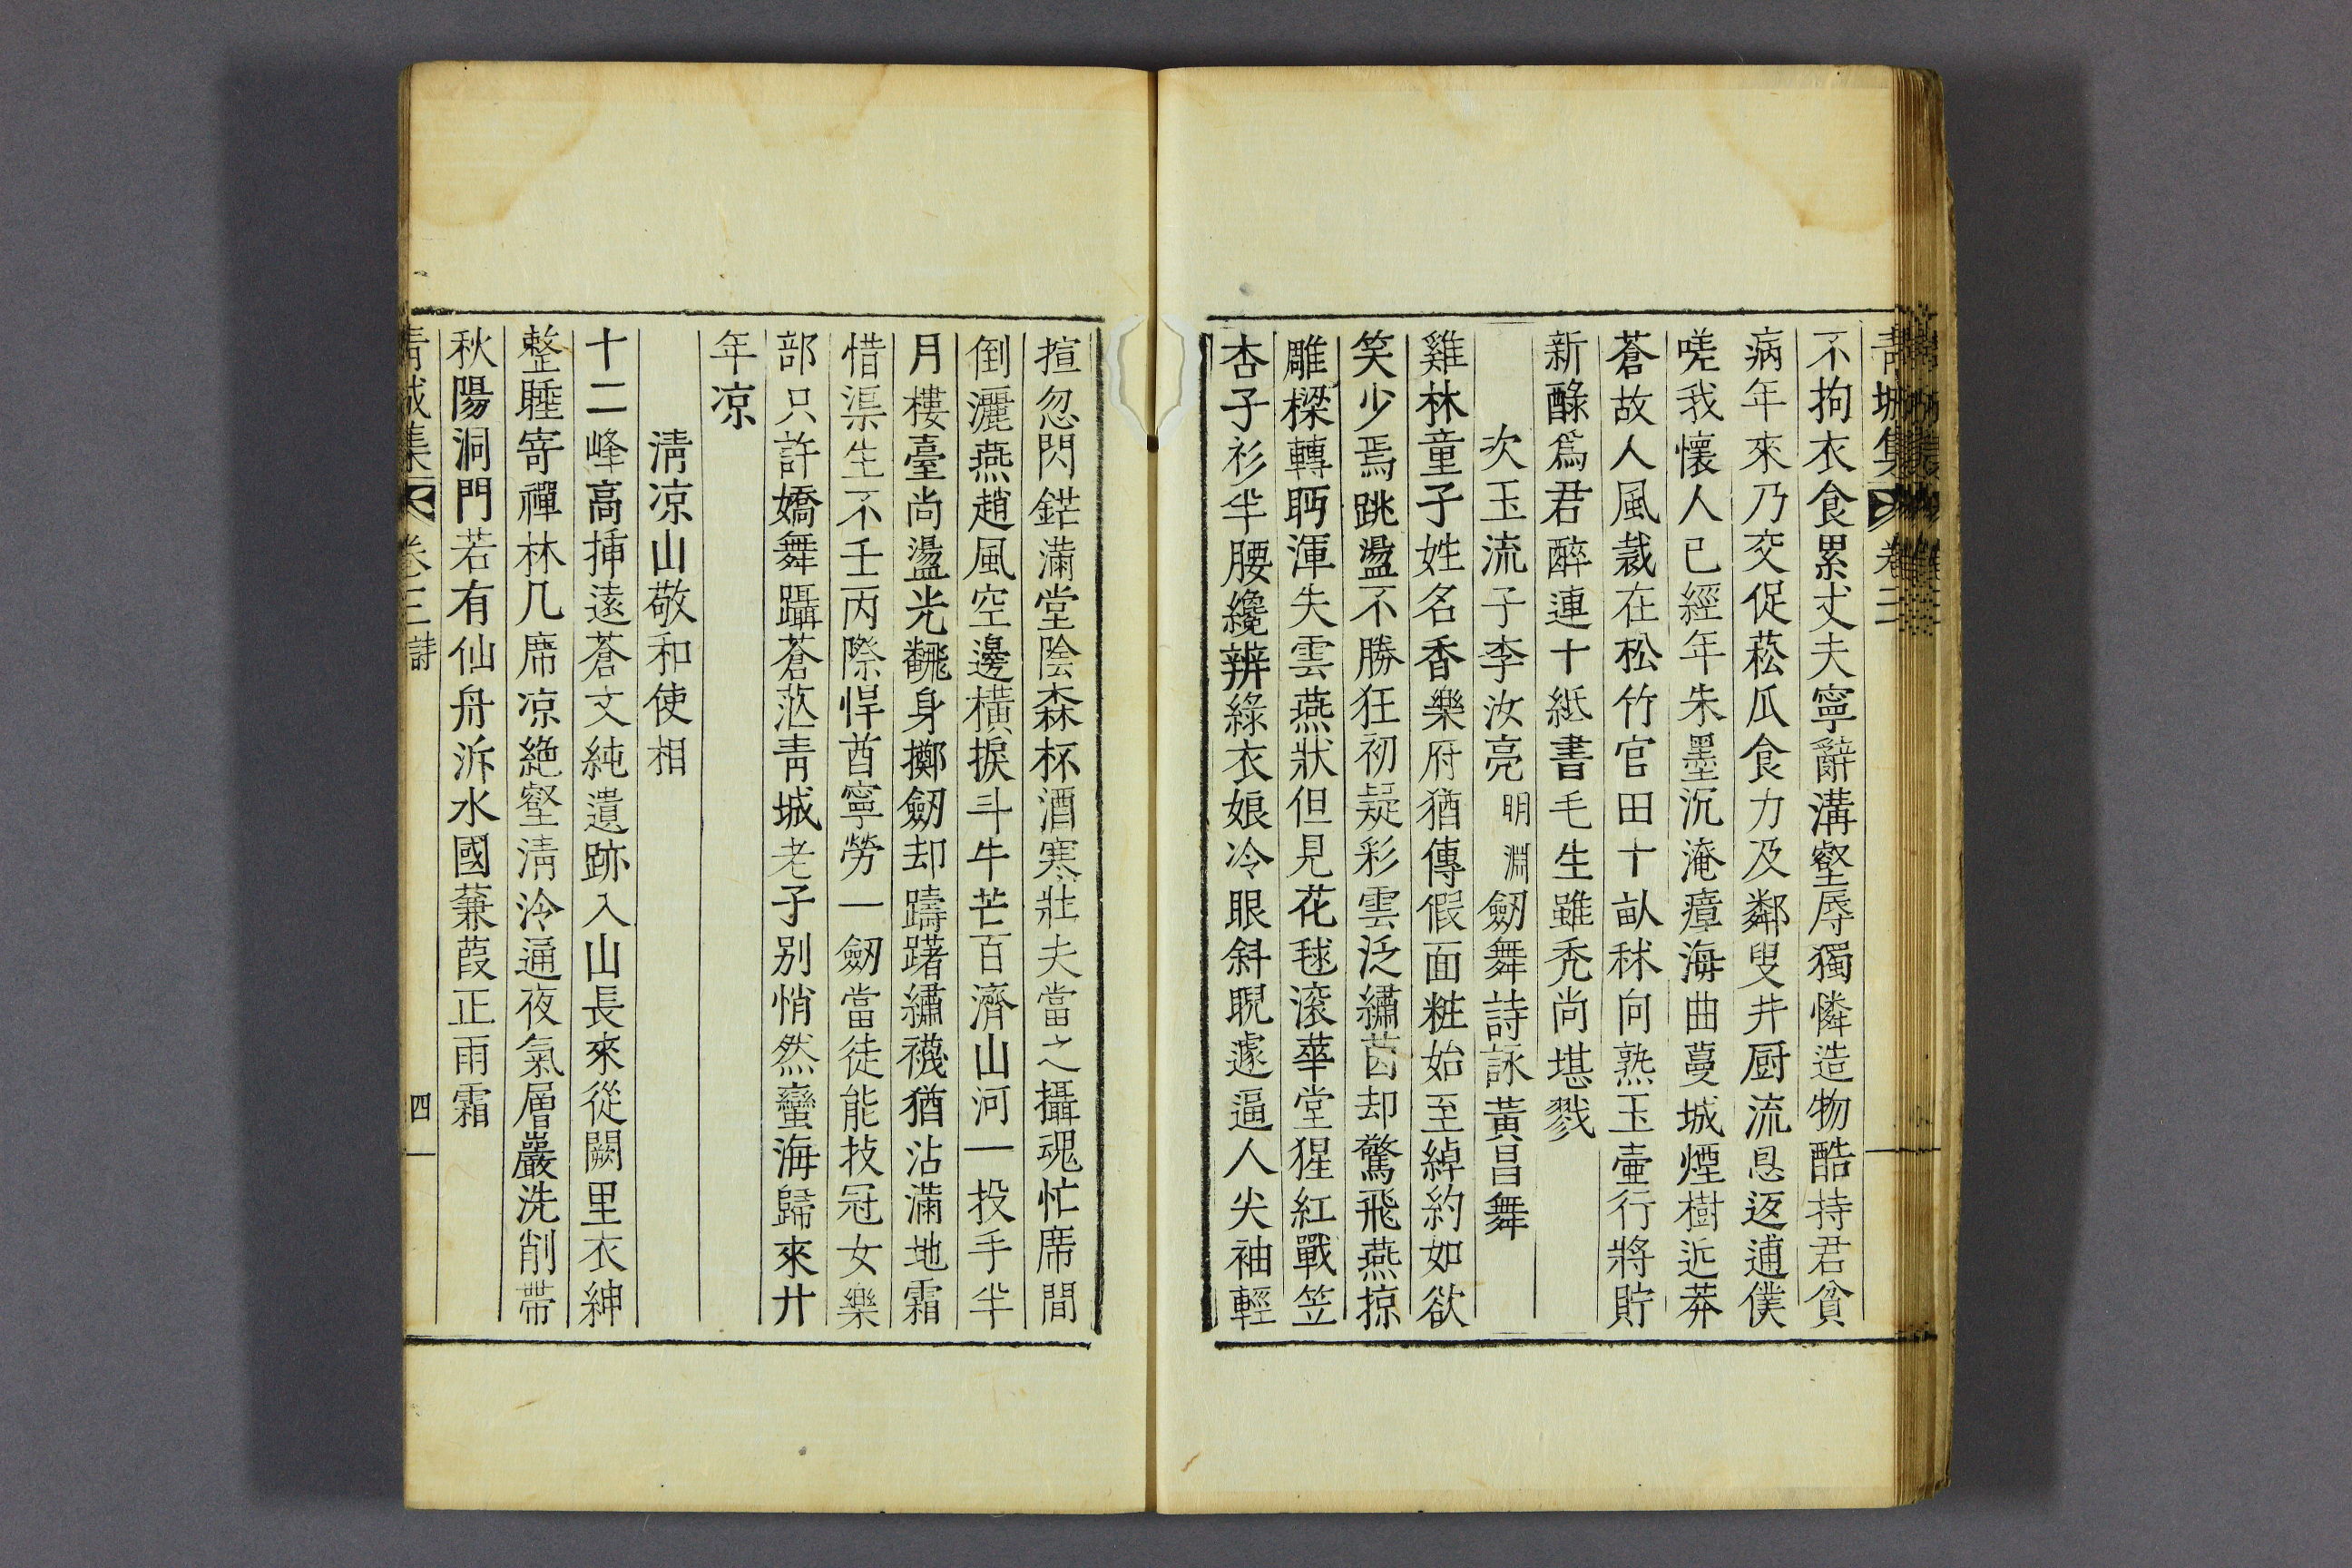 靑城集 卷三
不拘衣食累丈夫寧辭溝壑辱獨憐造物酷持君貧
病年來乃交促菘瓜食力及鄰叟井厨流恩返逋僕
嗟我懷人已經年朱墨沉淹瘴海曲蔓城煙樹近莽
蒼故人風裁在松竹官田十畝秫向熟玉壷行將貯
新醁爲君醉連十紙書毛生雖禿尙堪戮
次玉流子李汝亮明淵劒舞詩詠黃昌舞
雞林童子姓名香樂府猶傳假面粧始至綽約如欲
笑少焉跳盪不勝狂初疑彩雲泛繡茵却驚飛燕掠
雕樑轉眄渾失雲燕狀但見花毬滚華堂猩紅戰笠
杏子衫半腰纔辨綠衣娘冷眼斜睨遽逼人尖袖輕
揎忽閃鋩滿堂陰森杯酒寒壯夫當之攝魂忙席間
倒灑燕趙風空邊橫捩斗牛芒百濟山河一投手半
月樓臺尙盪光飜身擲劒却躊躇繡襪猶沾滿地霜
惜渠生不壬丙際悍酋寧勞一劒當徒能技冠女樂
部只許嬌舞躡蒼茫靑城老子别悄然蠻海歸來廿
年凉
淸凉山敬和使相
十二峰高揷遠蒼文純遺跡入山長來從闕里衣紳
整睡寄禪林几席凉絶壑淸泠通夜氣層巖洗削帶
秋陽洞門若有仙舟泝水國蒹葭正雨霜
靑城集 卷三 詩 四